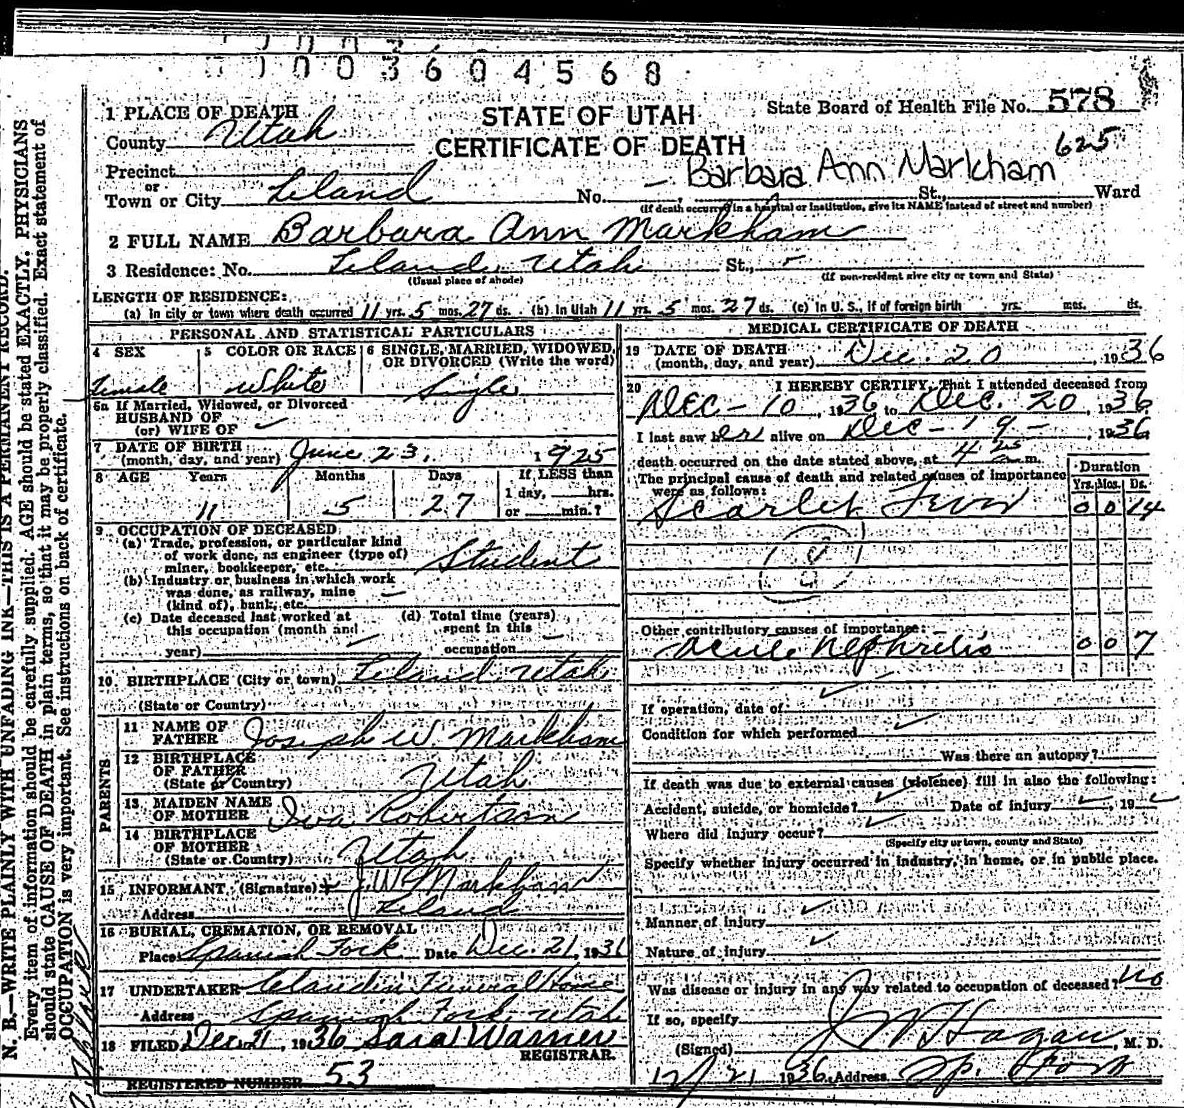 003604568
1 PLACE OF DEATH
STATE OF UTAH
State Board of Health File No. 578
County Utah
CERTIFICATE OF DEATH
625
Precinct
or
Barbara Ann Markham
Town or City Leland No. St., Ward
(If death occurred in a hospital or institution, give its NAME instead of street and number)
2 FULL NAME Barbara Ann Markham
3 Residence: No. Leland, Utah St.,
(Usual place of abode) (If non-resident give city or town and State)
LENGTH OF RESIDENCE:
(a) In city or town where death occurred 11 yrs. 5 mos. 27 ds. (b) In Utah 11 yrs. 5 mos. 27 ds. (c) In U. S., if of foreign birth yrs. mos. ds.
PERSONAL AND STATISTICAL PARTICULARS
4 SEX
Female
5 COLOR OR RACE
White
6 SINGLE, MARRIED, WIDOWED,
OR DIVORCED (Write the word)
Single
6a If Married, Widowed, or Divorced
HUSBAND OF
(or) WIFE OF
7 DATE OF BIRTH
(month, day, and year) June 23, 1925
8 AGE Years Months Days If LESS than
1 day, hrs.
or min.?
11 5 27
9 OCCUPATION OF DECEASED
(a) Trade, profession, or particular kind
of work done, as engineer (type of)
miner, bookkeeper, etc. Student
(b) Industry or business in which work
was done, as railway, mine
(kind of), bank, etc.
(c) Date deceased last worked at
this occupation (month and
year)
(d) Total time (years)
spent in this
occupation
10 BIRTHPLACE (City or town) Leland Utah
(State or Country)
PARENTS
11 NAME OF
FATHER Joseph W. Markham
12 BIRTHPLACE
OF FATHER
(State or Country) Utah
13 MAIDEN NAME
OF MOTHER Iva Robertson
14 BIRTHPLACE
OF MOTHER
(State or Country) Utah
15 INFORMANT (Signature) J. W. Markham
Address Leland
16 BURIAL, CREMATION, OR REMOVAL
Place Spanish Fork Date Dec. 21, 1936
17 UNDERTAKER Claudin Funeral Home
Address Spanish Fork, Utah
18 FILED Dec. 21, 1936 Sara Warner
REGISTRAR.
REGISTERED NUMBER 53
MEDICAL CERTIFICATE OF DEATH
19 DATE OF DEATH
(month, day, and year) Dec. 20, 1936
20 I HEREBY CERTIFY, That I attended deceased from
Dec - 10, 1936 to Dec. 20, 1936
I last saw her alive on Dec - 19 -, 1936
death occurred on the date stated above, at 4 25 a m.
The principal cause of death and related causes of importance
were as follows:
Duration
Yrs. Mos. Ds.
Scarlet Fever 0 0 14
8
Other contributory causes of importance:
Acute Nephritis 0 0 7
If operation, date of
Condition for which performed
Was there an autopsy?
If death was due to external causes (violence) fill in also the following:
Accident, suicide, or homicide? Date of injury , 19
Where did injury occur?
(Specify city or town, county and State)
Specify whether injury occurred in industry, in home, or in public place.
Manner of injury
Nature of injury
Was disease or injury in any way related to occupation of deceased? No
If so, specify
(Signed) J W Hagan, M. D.
12/21 1936 Address Sp. Fork
N. B.—WRITE PLAINLY WITH UNFADING INK—THIS IS A PERMANENT RECORD.
Every item of information should be carefully supplied. AGE should be stated EXACTLY. PHYSICIANS
should state CAUSE OF DEATH in plain terms, so that it may be properly classified. Exact statement of
OCCUPATION is very important. See instructions on back of certificate.